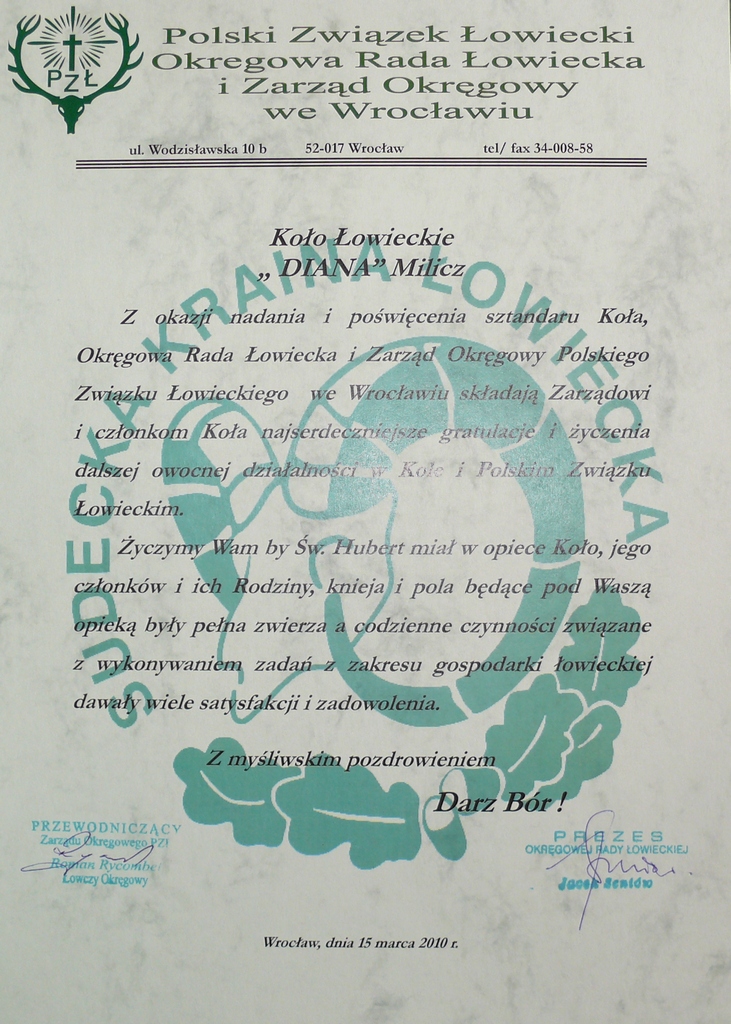 PZŁ
Polski Związek Łowiecki
Okręgowa Rada Łowiecka
i Zarząd Okręgowy
we Wrocławiu
ul. Wodzisławska 10 b 52-017 Wrocław tel/ fax 34-008-58
SUDECKA KRAINA ŁOWIECKA
Koło Łowieckie
„ DIANA” Milicz
Z okazji nadania i poświęcenia sztandaru Koła,
Okręgowa Rada Łowiecka i Zarząd Okręgowy Polskiego
Związku Łowieckiego we Wrocławiu składają Zarządowi
i członkom Koła najserdeczniejsze gratulacje i życzenia
dalszej owocnej działalności w Kole i Polskim Związku
Łowieckim.
Życzymy Wam by Św. Hubert miał w opiece Koło, jego
członków i ich Rodziny, knieja i pola będące pod Waszą
opieką były pełna zwierza a codzienne czynności związane
z wykonywaniem zadań z zakresu gospodarki łowieckiej
dawały wiele satysfakcji i zadowolenia.
Z myśliwskim pozdrowieniem
Darz Bór !
PRZEWODNICZĄCY
Zarządu Okręgowego PZŁ
Roman Rycombel
Łowczy Okręgowy
PREZES
OKRĘGOWEJ RADY ŁOWIECKIEJ
Jacek Seniów
Wrocław, dnia 15 marca 2010 r.